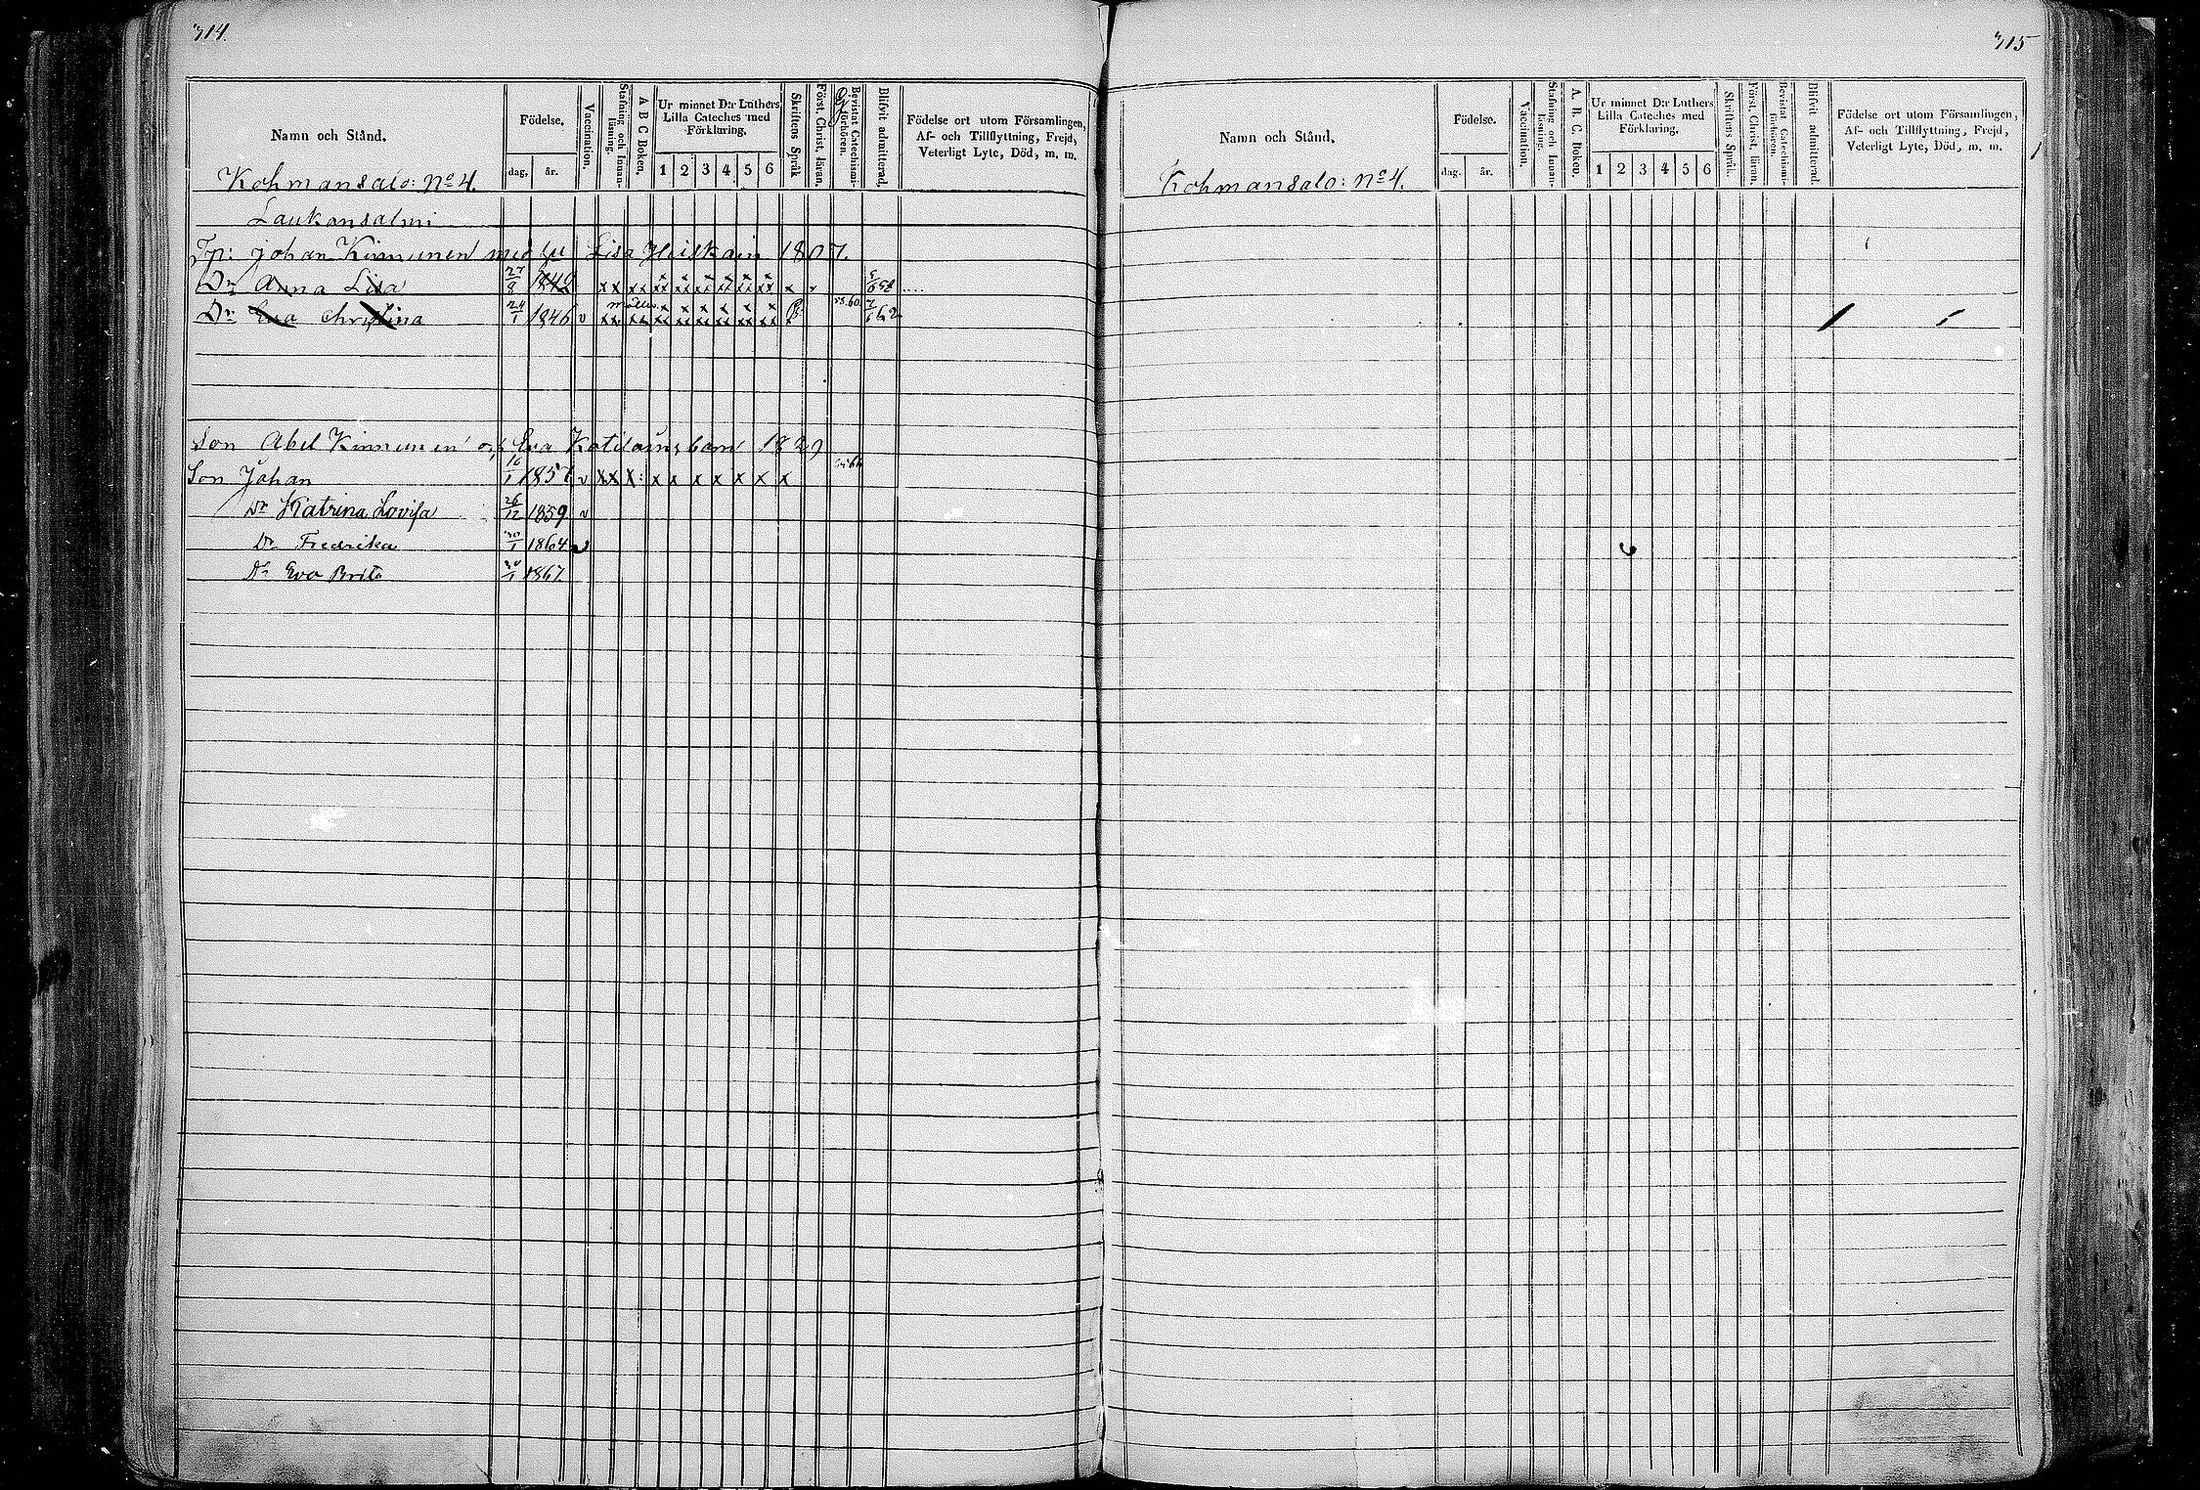 314.
Namn och Stånd.
Födelse.
dag, år.
Vaccination.
Stafning och Innan-
läsning.
A B C Boken.
Ur minnet D:r Luthers
Lilla Cateches med
Förklaring.
1 2 3 4 5 6
Skriftens Språk
Först. Christ. läran.
Bevistat Catechismi-
förhören.
Blifvit admitterad.
Födelse ort utom Församlingen,
Af- och Tillflyttning, Frejd,
Veterligt Lyte, Död, m. m.
Kohmansalo: No 4.
Laukansalmi
Johan Kinnunen med hu Lisa Heiskain 1807.
Dr Anna Lisa 27/8 1842 xx xx
Dr Eva Christina 24/1 1846 v xx xx
Son Abel Kinnunen Eva Katilains barn 1829
Son Johan 16/1 1857 v xx x x x x x x x x
Dr Katrina Lovisa 26/12 1859 v
Dr Fredrika 30/1 1864 v
Dr Eva Brita 20/1 1867.
315
Namn och Stånd.
Födelse.
dag. år.
Vaccination.
Stafning och Innan-
läsning.
A. B. C. Boken.
Ur minnet D:r Luthers
Lilla Cateches med
Förklaring.
1 2 3 4 5 6
Skriftens Språk.
Först. Christ. läran.
Bevistat Catechismi-
förhören.
Blifvit admitterad.
Födelse ort utom Församlingen,
Af- och Tillflyttning, Frejd,
Veterligt Lyte, Död, m. m.
Kohmansalo: No 4.